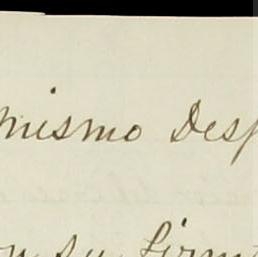 mismo Desp
su firm